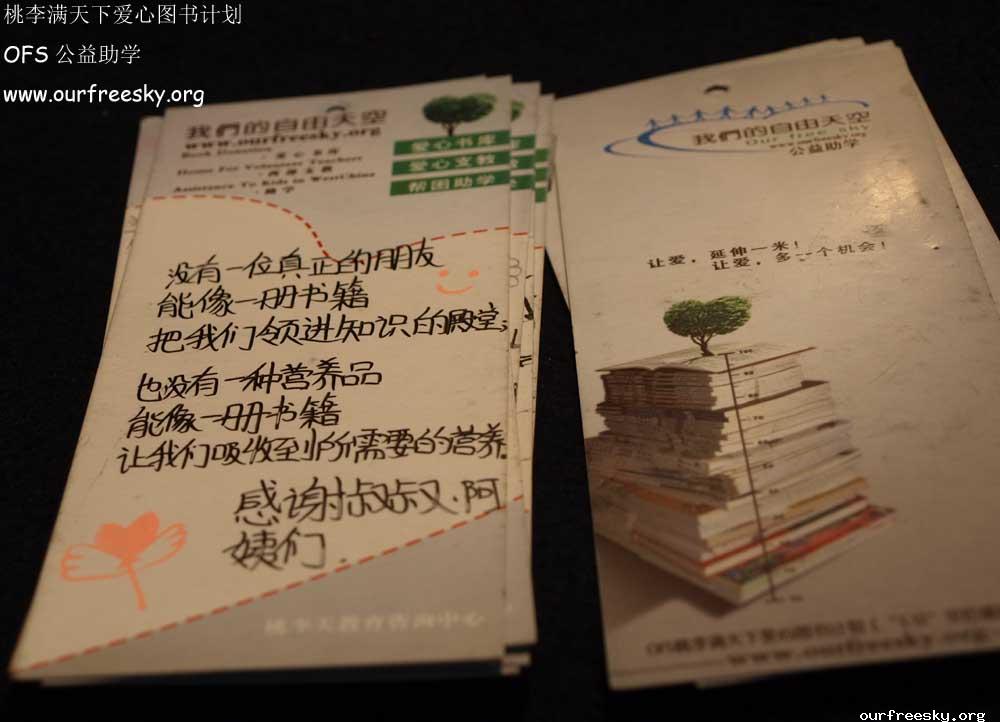 桃李满天下爱心图书计划
OFS 公益助学
www.ourfreesky.org
我們的自由天空
www.ourfreesky.org
Book Donation
·爱心书库
Home For Volunteer Teachers
·西部支教
Assistance To Kids in WestChina
·助学
爱心书库
爱心支教
帮困助学
没有一位真正的朋友
能像一册书籍
把我们领进知识的殿堂;
也没有一种营养品
能像一册书籍
让我们吸收到所需要的营养.
感谢叔叔、阿
姨们.
桃李天教育咨询中心
我們的自由天空
Our free sky
www.ourfreesky.org
公益助学
让爱，延伸一米！
让爱，多一个机会！
OFS桃李满天下爱心图书计划
www.ourfreesky.org
ourfreesky.org